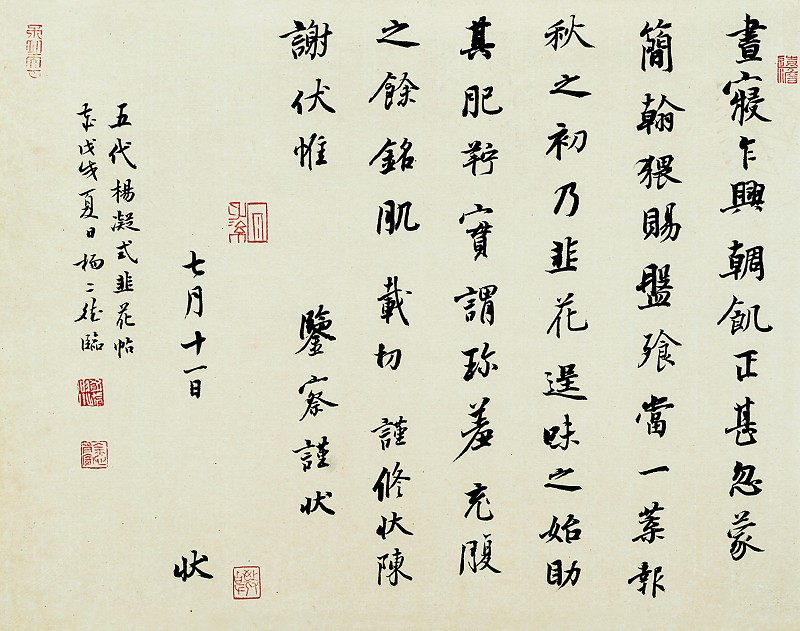 晝寢乍興朝飢正甚忽蒙
簡翰猥賜盤飧當一葉報
秋之初乃韭花逞味之始助
其肥羜實謂珍羞充腹
之餘銘肌載切謹修狀陳
謝伏惟
鑒察謹狀
七月十一日
狀
五代楊凝式韭花帖
戊戌夏日楊二臨